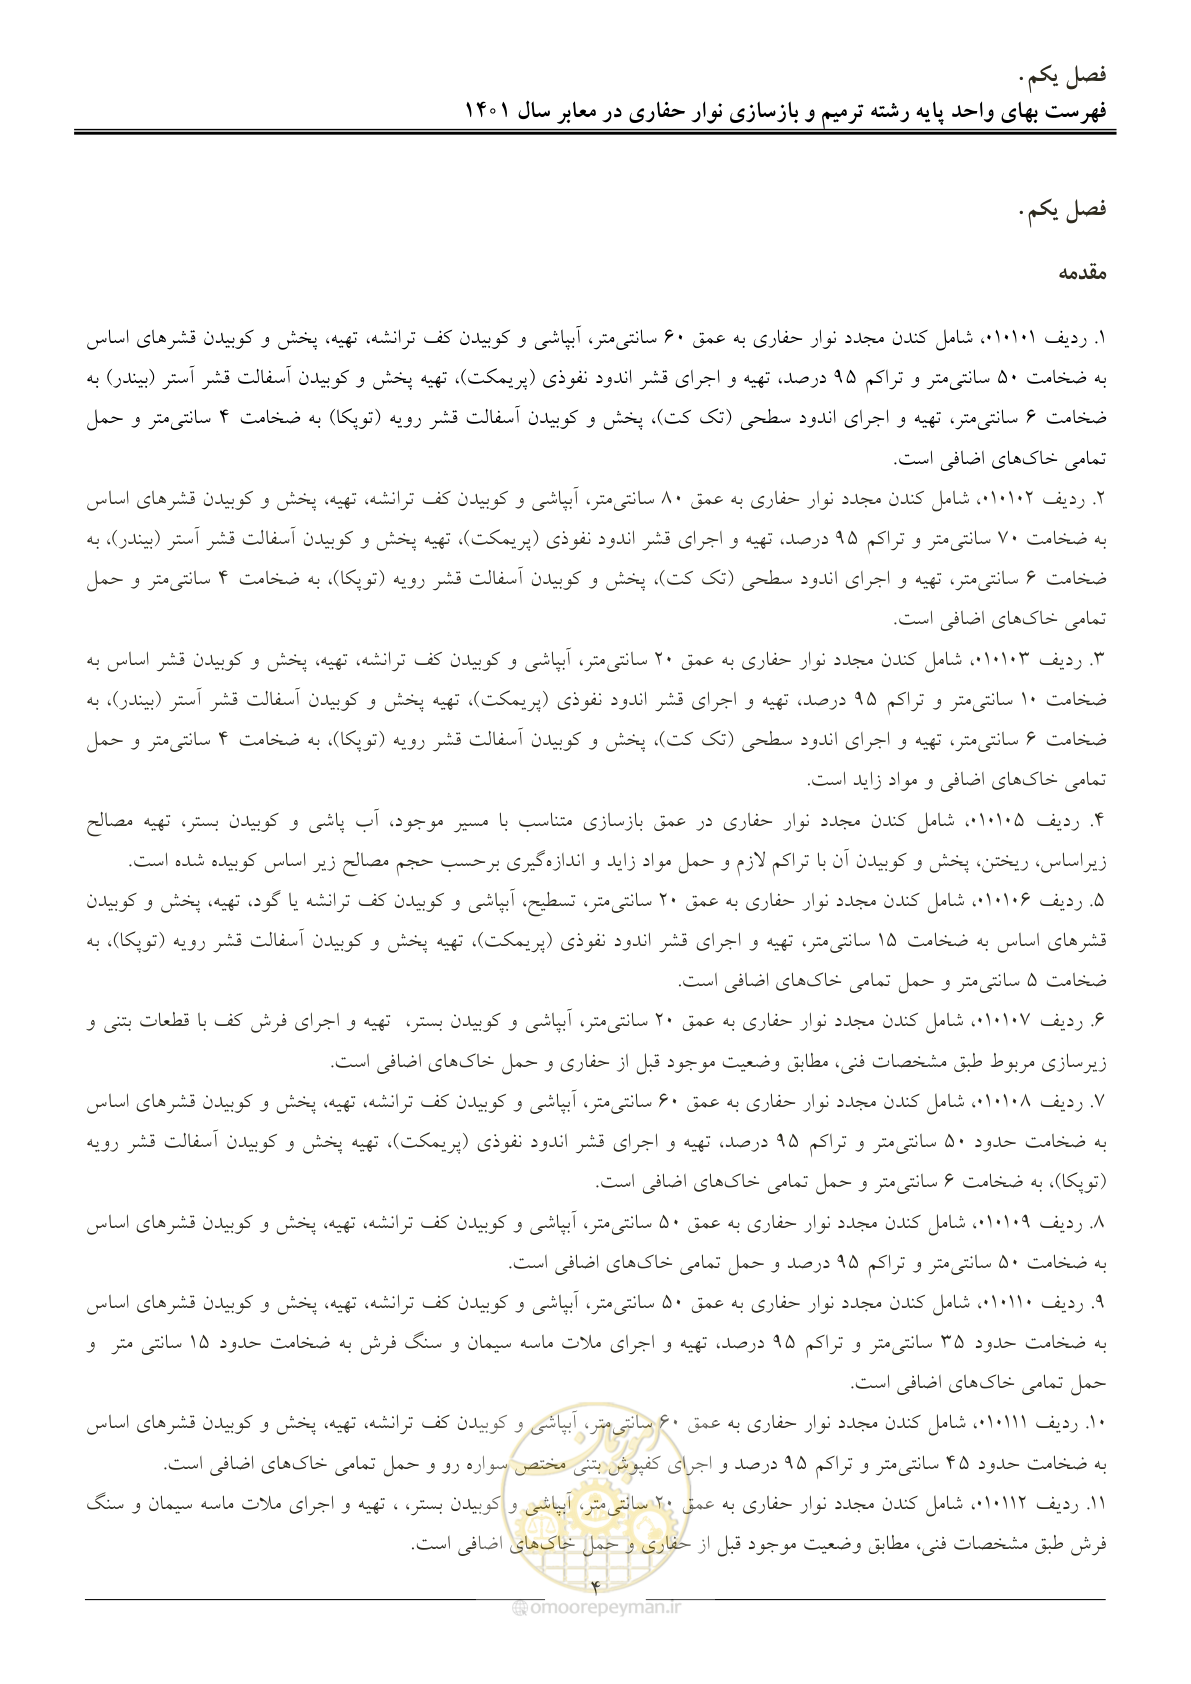 فصل یکم.
فهرست بهای واحد پایه رشته ترمیم و بازسازی نوار حفاری در معابر سال ۱۴۰۱
فصل یکم.
مقدمه
۱. ردیف ۰۱۰۱۰۱، شامل کندن مجدد نوار حفاری به عمق ۶۰ سانتی‌متر، آبپاشی و کوبیدن کف ترانشه، تهیه، پخش و کوبیدن قشرهای اساس
به ضخامت ۵۰ سانتی‌متر و تراکم ۹۵ درصد، تهیه و اجرای قشر اندود نفوذی (پریمکت)، تهیه پخش و کوبیدن آسفالت قشر آستر (بیندر) به
ضخامت ۶ سانتی‌متر، تهیه و اجرای اندود سطحی (تک کت)، پخش و کوبیدن آسفالت قشر رویه (توپکا) به ضخامت ۴ سانتی‌متر و حمل
تمامی خاک‌های اضافی است.
۲. ردیف ۰۱۰۱۰۲، شامل کندن مجدد نوار حفاری به عمق ۸۰ سانتی‌متر، آبپاشی و کوبیدن کف ترانشه، تهیه، پخش و کوبیدن قشرهای اساس
به ضخامت ۷۰ سانتی‌متر و تراکم ۹۵ درصد، تهیه و اجرای قشر اندود نفوذی (پریمکت)، تهیه پخش و کوبیدن آسفالت قشر آستر (بیندر)، به
ضخامت ۶ سانتی‌متر، تهیه و اجرای اندود سطحی (تک کت)، پخش و کوبیدن آسفالت قشر رویه (توپکا)، به ضخامت ۴ سانتی‌متر و حمل
تمامی خاک‌های اضافی است.
۳. ردیف ۰۱۰۱۰۳، شامل کندن مجدد نوار حفاری به عمق ۲۰ سانتی‌متر، آبپاشی و کوبیدن کف ترانشه، تهیه، پخش و کوبیدن قشر اساس به
ضخامت ۱۰ سانتی‌متر و تراکم ۹۵ درصد، تهیه و اجرای قشر اندود نفوذی (پریمکت)، تهیه پخش و کوبیدن آسفالت قشر آستر (بیندر)، به
ضخامت ۶ سانتی‌متر، تهیه و اجرای اندود سطحی (تک کت)، پخش و کوبیدن آسفالت قشر رویه (توپکا)، به ضخامت ۴ سانتی‌متر و حمل
تمامی خاک‌های اضافی و مواد زاید است.
۴. ردیف ۰۱۰۱۰۵، شامل کندن مجدد نوار حفاری در عمق بازسازی متناسب با مسیر موجود، آب پاشی و کوبیدن بستر، تهیه مصالح
زیراساس، ریختن، پخش و کوبیدن آن با تراکم لازم و حمل مواد زاید و اندازه‌گیری برحسب حجم مصالح زیر اساس کوبیده شده است.
۵. ردیف ۰۱۰۱۰۶، شامل کندن مجدد نوار حفاری به عمق ۲۰ سانتی‌متر، تسطیح، آبپاشی و کوبیدن کف ترانشه یا گود، تهیه، پخش و کوبیدن
قشرهای اساس به ضخامت ۱۵ سانتی‌متر، تهیه و اجرای قشر اندود نفوذی (پریمکت)، تهیه پخش و کوبیدن آسفالت قشر رویه (توپکا)، به
ضخامت ۵ سانتی‌متر و حمل تمامی خاک‌های اضافی است.
۶. ردیف ۰۱۰۱۰۷، شامل کندن مجدد نوار حفاری به عمق ۲۰ سانتی‌متر، آبپاشی و کوبیدن بستر، تهیه و اجرای فرش کف با قطعات بتنی و
زیرسازی مربوط طبق مشخصات فنی، مطابق وضعیت موجود قبل از حفاری و حمل خاک‌های اضافی است.
۷. ردیف ۰۱۰۱۰۸، شامل کندن مجدد نوار حفاری به عمق ۶۰ سانتی‌متر، آبپاشی و کوبیدن کف ترانشه، تهیه، پخش و کوبیدن قشرهای اساس
به ضخامت حدود ۵۰ سانتی‌متر و تراکم ۹۵ درصد، تهیه و اجرای قشر اندود نفوذی (پریمکت)، تهیه پخش و کوبیدن آسفالت قشر رویه
(توپکا)، به ضخامت ۶ سانتی‌متر و حمل تمامی خاک‌های اضافی است.
۸. ردیف ۰۱۰۱۰۹، شامل کندن مجدد نوار حفاری به عمق ۵۰ سانتی‌متر، آبپاشی و کوبیدن کف ترانشه، تهیه، پخش و کوبیدن قشرهای اساس
به ضخامت ۵۰ سانتی‌متر و تراکم ۹۵ درصد و حمل تمامی خاک‌های اضافی است.
۹. ردیف ۰۱۰۱۱۰، شامل کندن مجدد نوار حفاری به عمق ۵۰ سانتی‌متر، آبپاشی و کوبیدن کف ترانشه، تهیه، پخش و کوبیدن قشرهای اساس
به ضخامت حدود ۳۵ سانتی‌متر و تراکم ۹۵ درصد، تهیه و اجرای ملات ماسه سیمان و سنگ فرش به ضخامت حدود ۱۵ سانتی متر و
حمل تمامی خاک‌های اضافی است.
۱۰. ردیف ۰۱۰۱۱۱، شامل کندن مجدد نوار حفاری به عمق ۶۰ سانتی‌متر، آبپاشی و کوبیدن کف ترانشه، تهیه، پخش و کوبیدن قشرهای اساس
به ضخامت حدود ۴۵ سانتی‌متر و تراکم ۹۵ درصد و اجرای کفپوش بتنی مختص سواره رو و حمل تمامی خاک‌های اضافی است.
۱۱. ردیف ۰۱۰۱۱۲، شامل کندن مجدد نوار حفاری به عمق ۲۰ سانتی‌متر، آبپاشی و کوبیدن بستر، ، تهیه و اجرای ملات ماسه سیمان و سنگ
فرش طبق مشخصات فنی، مطابق وضعیت موجود قبل از حفاری و حمل خاک‌های اضافی است.
امور پیمان
۴
omoorepeyman.ir